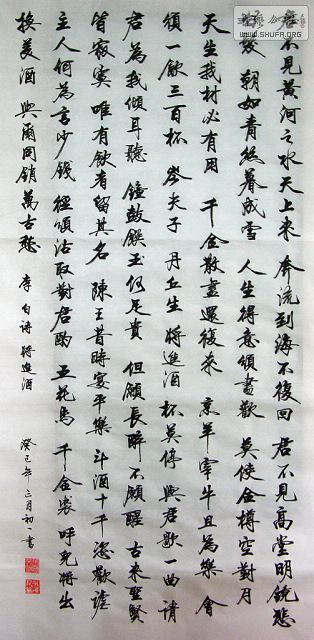 君不見黃河之水天上來 奔流到海不復回 君不見高堂明鏡悲
白髮 朝如青絲暮成雪 人生得意須盡歡 莫使金樽空對月
天生我材必有用 千金散盡還復來 烹羊宰牛且為樂 會
須一飲三百杯 岑夫子 丹丘生 將進酒 杯莫停 與君歌一曲 請
君為我傾耳聽 鐘鼓饌玉何足貴 但願長醉不願醒 古來聖賢
皆寂寞 唯有飲者留其名 陳王昔時宴平樂 斗酒十千恣歡謔
主人何為言少錢 徑須沽取對君酌 五花馬 千金裘 呼兒將出
換美酒 與爾同銷萬古愁 李白詩 將進酒 癸巳年三月初一書
WWW.SHUFA.ORG